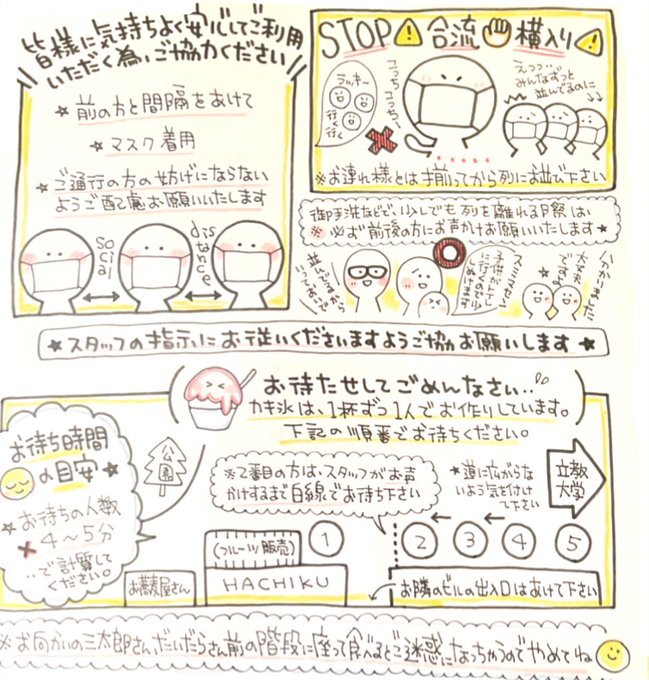 皆様に気持ちよく安心してご利用
いただく為、ご協力ください
★前の方と間隔をあけて
★マスク着用
★ご通行の方の妨げにならない
ようご配慮お願いいたします
social
distance
STOP⚠合流✋横入り⚠
ラッキー
行く行く
こっちこっち〜
えっっ‥
みんなずっと
並んでるのに
※お連れ様とは揃ってから列にお並び下さい
御手洗などで、少しでも列を離れる際は
※必ず前後の方にお声かけお願いいたします★
並んでるから
いっておいで
スミマセン
大丈夫
ですよ
わかりました
★スタッフの指示にお従いくださいますようご協力お願いします★
お待たせしてごめんなさい‥
カキ氷は、1杯ずつ1人でお作りしています。
下記の順番でお待ちください。
お待ち時間
の目安★
★お待ちの人数
×4〜5分
‥で計算して
ください。
公園
※2番目の方は、スタッフがお声
かけするまで白線でお待ち下さい
★道に広がらな
いよう気を付け
て下さい
立教
大学
(フルーツ販売)
① ② ③ ④ ⑤
お蕎麦屋さん
HACHIKU
お隣のビルの出入口はあけて下さい
※お向かいの三太郎さん、だいだらさん前の階段に座って食べるとご迷惑になっちゃうのでやめてね